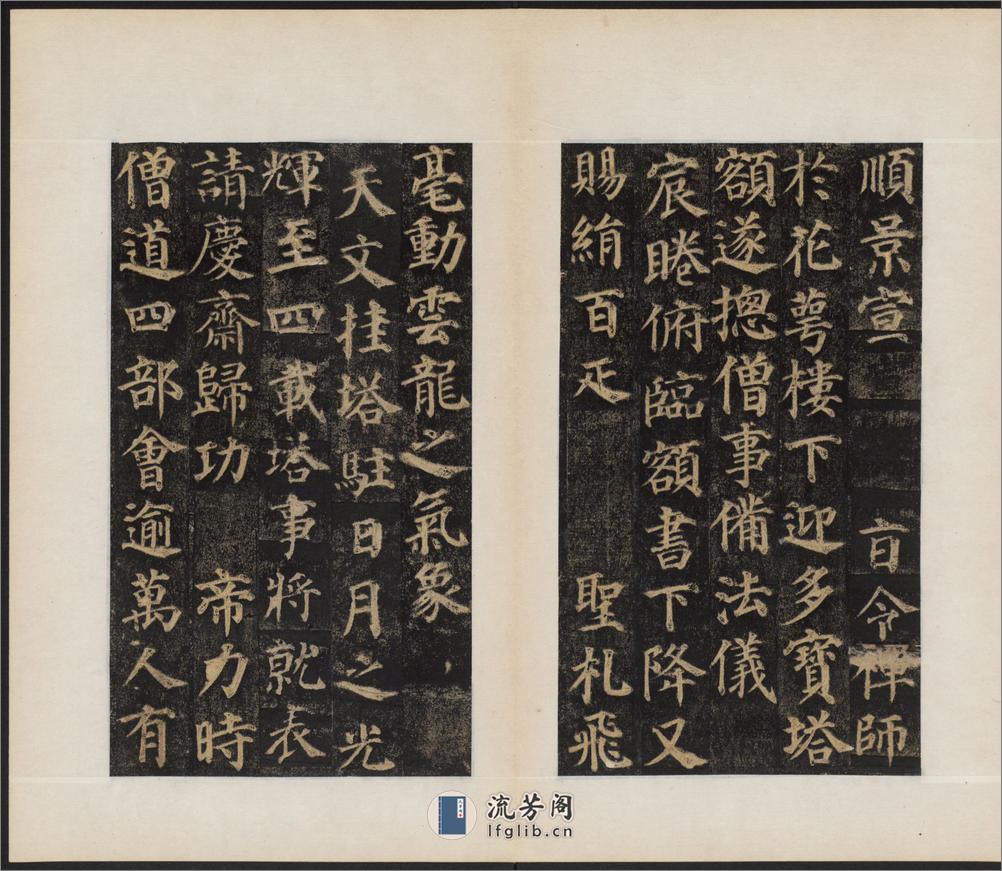 順景宣 旨令禅師
於花萼樓下迎多寶塔
額遂揔僧事備法儀
宸睠俯臨額書下降又
賜絹百疋 聖札飛
毫動雲龍之氣象
天文挂塔駐日月之光
輝至四載塔事將就表
請慶齋歸功 帝力時
僧道四部會逾萬人有
流芳阁
lfglib.cn